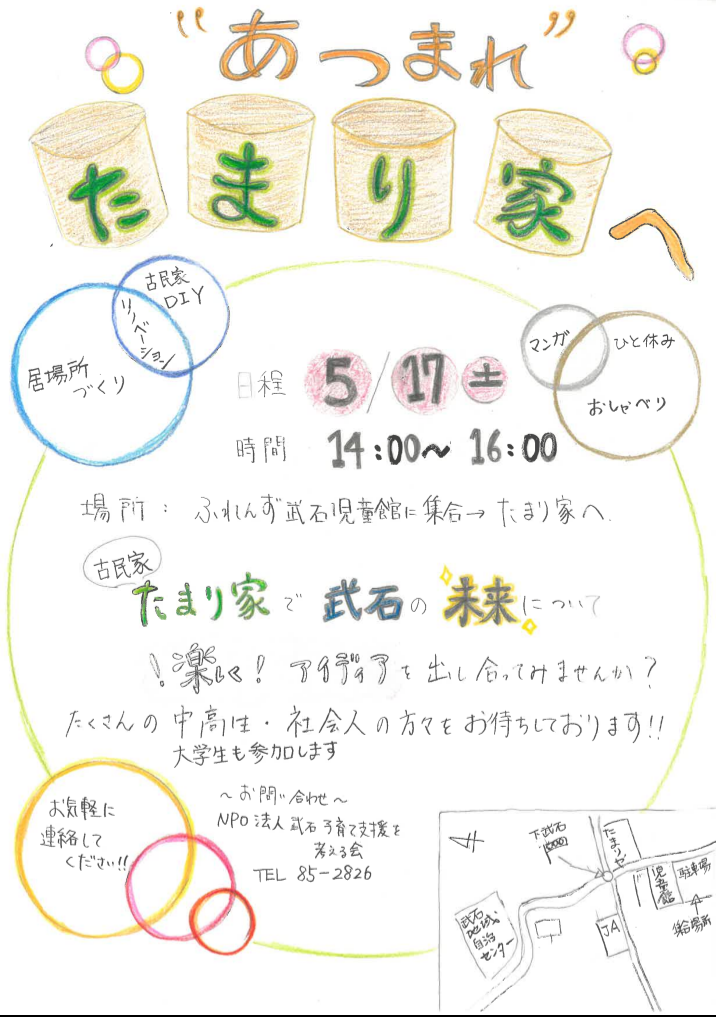 “あつまれ”
たまり家へ
古民家
DIY
リノベーション
居場所
づくり
マンガ
ひと休み
おしゃべり
日程 5/17 土
時間 14:00〜16:00
場所：ふれんず武石児童館に集合→たまり家へ
古民家
たまり家で武石の未来について
！楽しく！アイディアを出し合ってみませんか？
たくさんの中高生・社会人の方々をお待ちしております!!
大学生も参加します
お気軽に
連絡して
ください!!
〜お問い合わせ〜
NPO法人 武石子育て支援を
考える会
TEL 85-2826
下武石
たまりや
児童館
駐車場
集合場所
JA
武石
地域
自治
センター